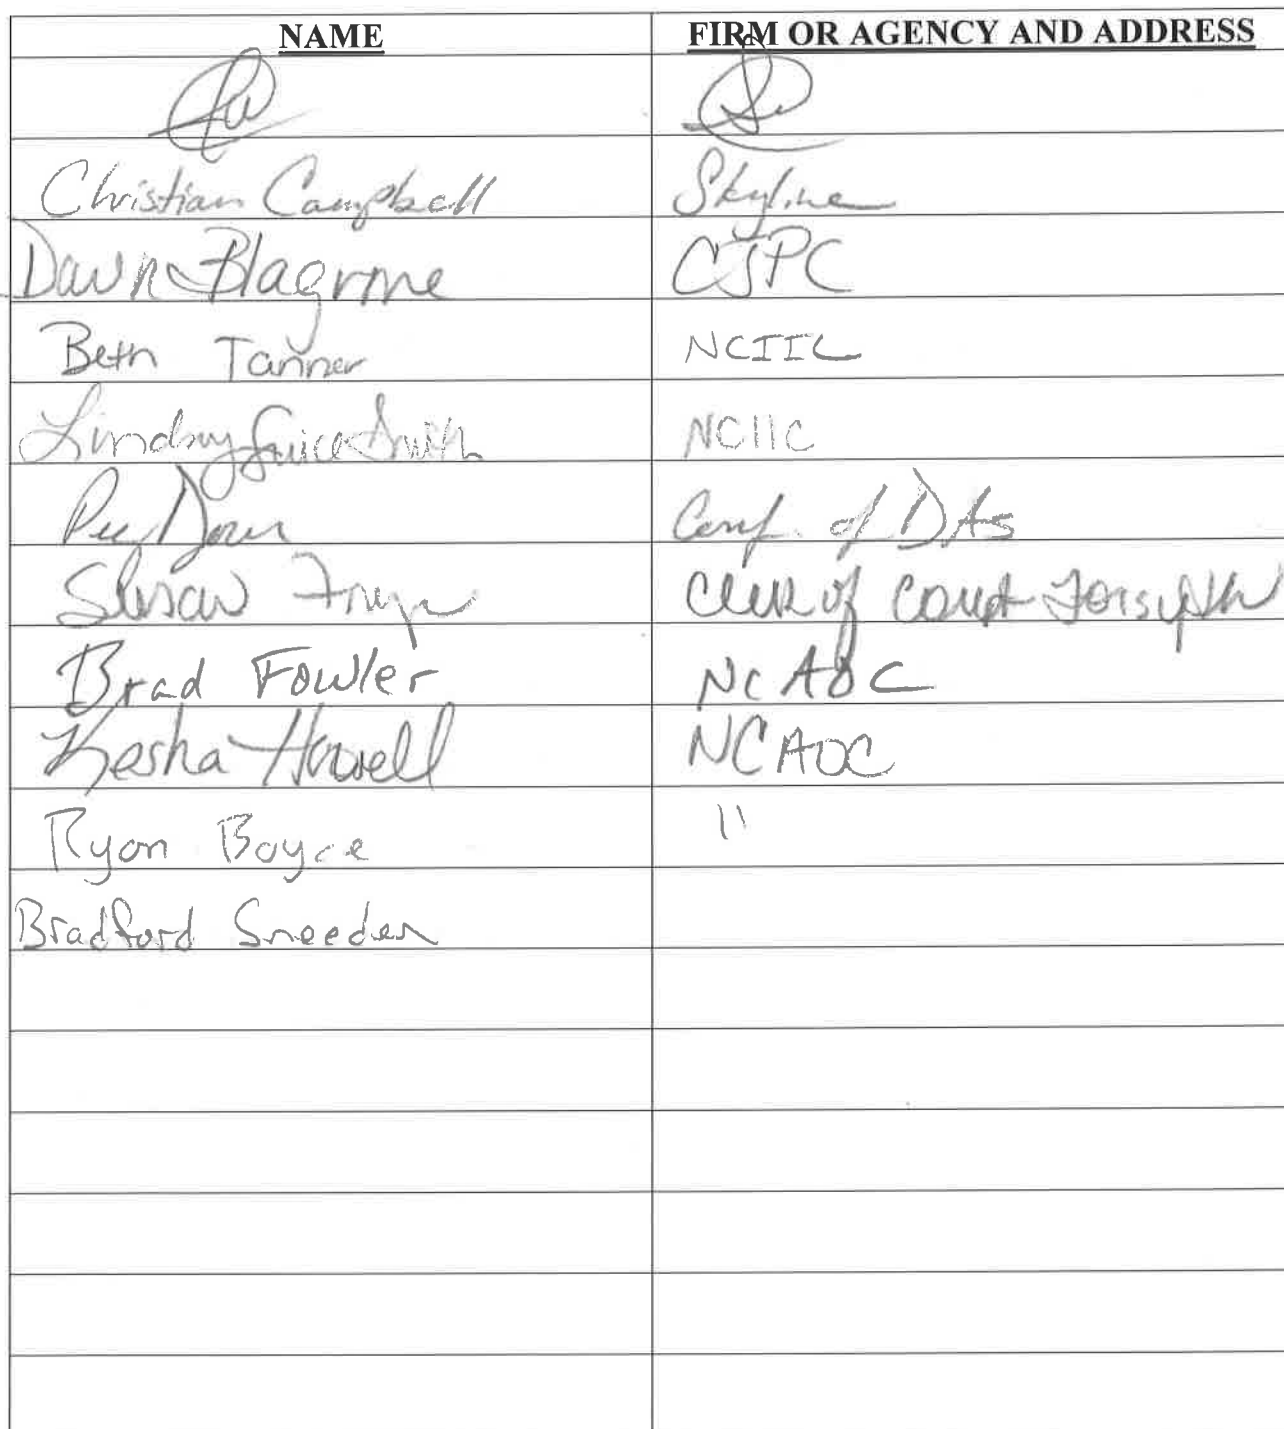 NAME FIRM OR AGENCY AND ADDRESS
Christian Campbell Skyline
Dawn Blagrove CJPC
Beth Tanner NCIIC
Lindsey Guice Smith NCIIC
Peg Dorer Conf. of DAs
Susan Frye Clerk of Court Forsyth
Brad Fowler NC AOC
Kesha Howell NCAOC
Ryan Boyce "
Bradford Sneeden